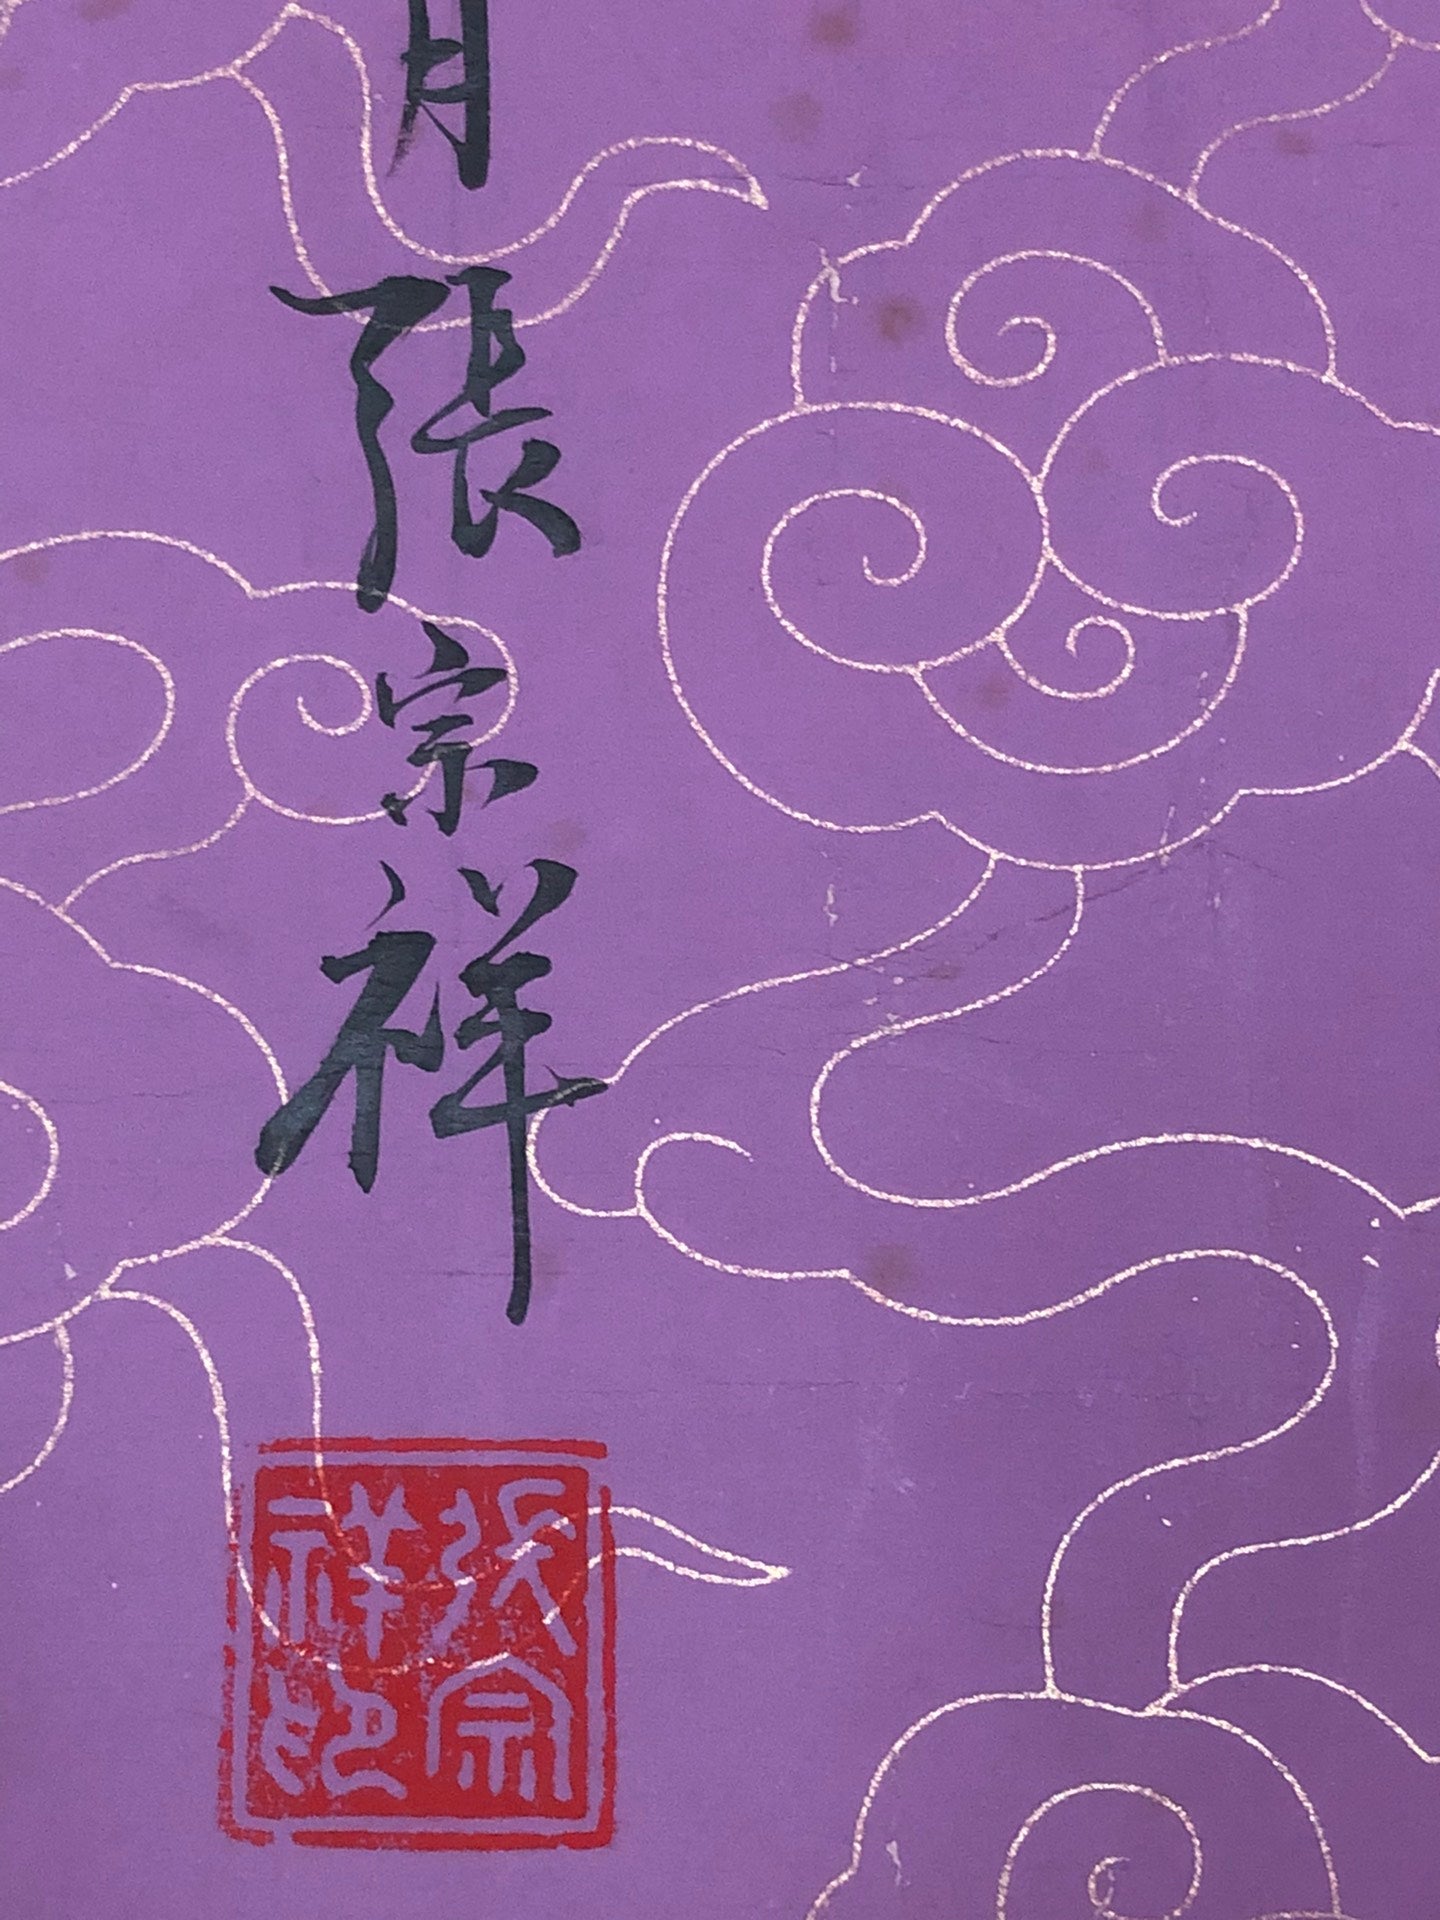 月
張宗祥
張宗
祥印